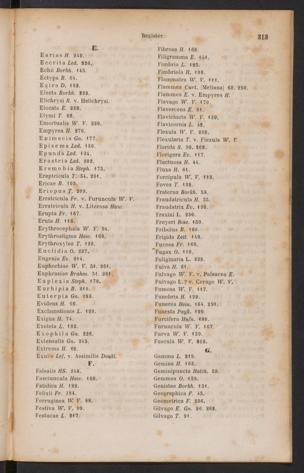 Register.
313
E.
Earias H. 249.
Eccrita Led. 324.
Echii Borkh. 145.
Ectypa B. 64.
Egira D. 183.
Electa Borkh. 323.
Elichrysi R. v. Helichrysi.
Elocata E. 238.
Elymi T. 68.
Emortualis W. V. 239.
Empyrea H. 276.
Epimecia Gn. 177.
Episema Led. 150.
Epunda Led. 124.
Erastria Led. 202.
Eremobia Steph. 173.
Ereptricula T. St. 261.
Ericae B. 102.
Eriopus T. 209.
Erraticula Fr. v. Furuncula W. V.
Erraticula H. v. Literosa Haw.
Erupta Fr. 167.
Eruta H. 116.
Erythrocephala W. V. 94.
Erythrostigma Haw. 160.
Erythroxylea T. 129.
Euclidia O. 227.
Eugenia Ev. 214.
Euphorbiae W. V. St. 261.
Euphrasiae Brahm. St. 261.
Euplexia Steph. 170.
Eurhipia B. 215.
Euterpia Gn. 193.
Evidens H. 66.
Exclamationis L. 129.
Exigua H. 74.
Exoleta L. 192.
Exophila Gn. 226.
Extensalis Gn. 245.
Extrema H. 69.
Exulis Lef. v. Assimilis Doubl.
F.
Faixalis HS. 248.
Fasciuncula Haw. 168.
Fatidica H. 123.
Felinii Fr. 194.
Ferruginea W. V. 98.
Festiva W. V. 99.
Festucae L. 217.
Fibrosa H. 160.
Filigramma E. 154.
Fimbria L. 122.
Fimbriola R. 122.
Flammatra W. V. 111.
Flammea Curt. (Meliana) 60. 280.
Flammea E. v. Empyrea H.
Flavago W. V. 170.
Flavescens E. 91.
Flavicincta W. V. 150.
Flavicornis L. 56.
Flexula W. V. 250.
Flexularia T. v. Flexula W. V.
Florida S. 90. 268.
Florigera Ev. 117.
Fluctuosa H. 44.
Fluxa H. 61.
Forcipula W. V. 112.
Fovea T. 138.
Fraterna Borkh. 59.
Fraudatricula H. 35.
Fraudatrix Ev. 196.
Fraxini L. 230.
Freyeri Boie. 150.
Fribolus B. 106.
Frigida Zett. 140.
Fucosa Fr. 166.
Fugax O. 119.
Fuliginaria L. 238.
Fulva H. 61.
Fulvago W. V. v. Paleacea E.
Fulvago L.? v. Cerago W. V.
Fumosa W. V. 117.
Funebris H. 199.
Funerea Hein. 164. 291.
Funesta Payk. 199.
Furcifera Hufn. 188.
Furuncula W. V. 167.
Furva W. V. 159.
Fuscula W. V. 203.
G.
Gamma L. 219.
Gemina H. 163.
Geminipuncta Hatch. 59.
Gemmea O. 155.
Genistae Borkh. 131.
Geographica F. 45.
Geometrica F. 236.
Gilvago E. Gn. 96. 268.
Gilvago T. 91.